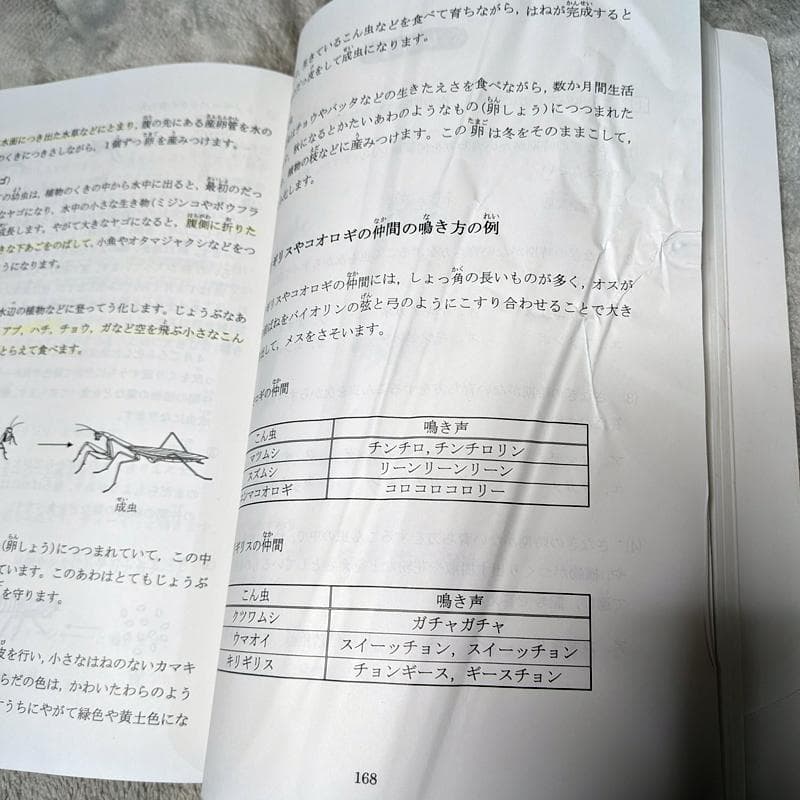 水面につき出た水草などにとまり，腹の先にある産卵管を水の
のくきにつきさしながら，1個ずつ卵を産みつけます。
ゴ）
の幼虫は，植物のくきの中から水中に出ると，最初のだっ
なヤゴになり，水中の小さな生き物（ミジンコやボウフラ
成長します。やがて大きなヤゴになると，腹側に折りた
きな下あごをのばして，小魚やオタマジャクシなどをつ
うになります。
水辺の植物などに登ってう化します。じょうぶなあ
アブ，ハチ，チョウ，ガなど空を飛ぶ小さなこん
とらえて食べます。
成虫
（卵しょう）につつまれていて，この中
ています。このあわはとてもじょうぶ
を守ります。
皮を行い，小さなはねのないカマキ
らだの色は，かわいたわらのよう
すうちにやがて緑色や黄土色にな
生きているこん虫などを食べて育ちながら，はねが完成すると
皮をして成虫になります。
はチョウやバッタなどの生きたえさを食べながら，数か月間生活
，秋になるとかたいあわのようなもの（卵しょう）につつまれた
植物の枝などに産みつけます。この卵は冬をそのままこして，
化します。
ギリスやコオロギの仲間の鳴き方の例
ギリスやコオロギの仲間には，しょっ角の長いものが多く，オスが
ばねをバイオリンの弦と弓のようにこすり合わせることで大き
だして，メスをさそいます。
ロギの仲間
こん虫 鳴き声
マツムシ チンチロ，チンチロリン
スズムシ リーンリーンリーン
ンマコオロギ コロコロコロリー
ギリスの仲間
こん虫 鳴き声
クツワムシ ガチャガチャ
ウマオイ スイーッチョン，スイーッチョン
キリギリス チョンギース，ギースチョン
168